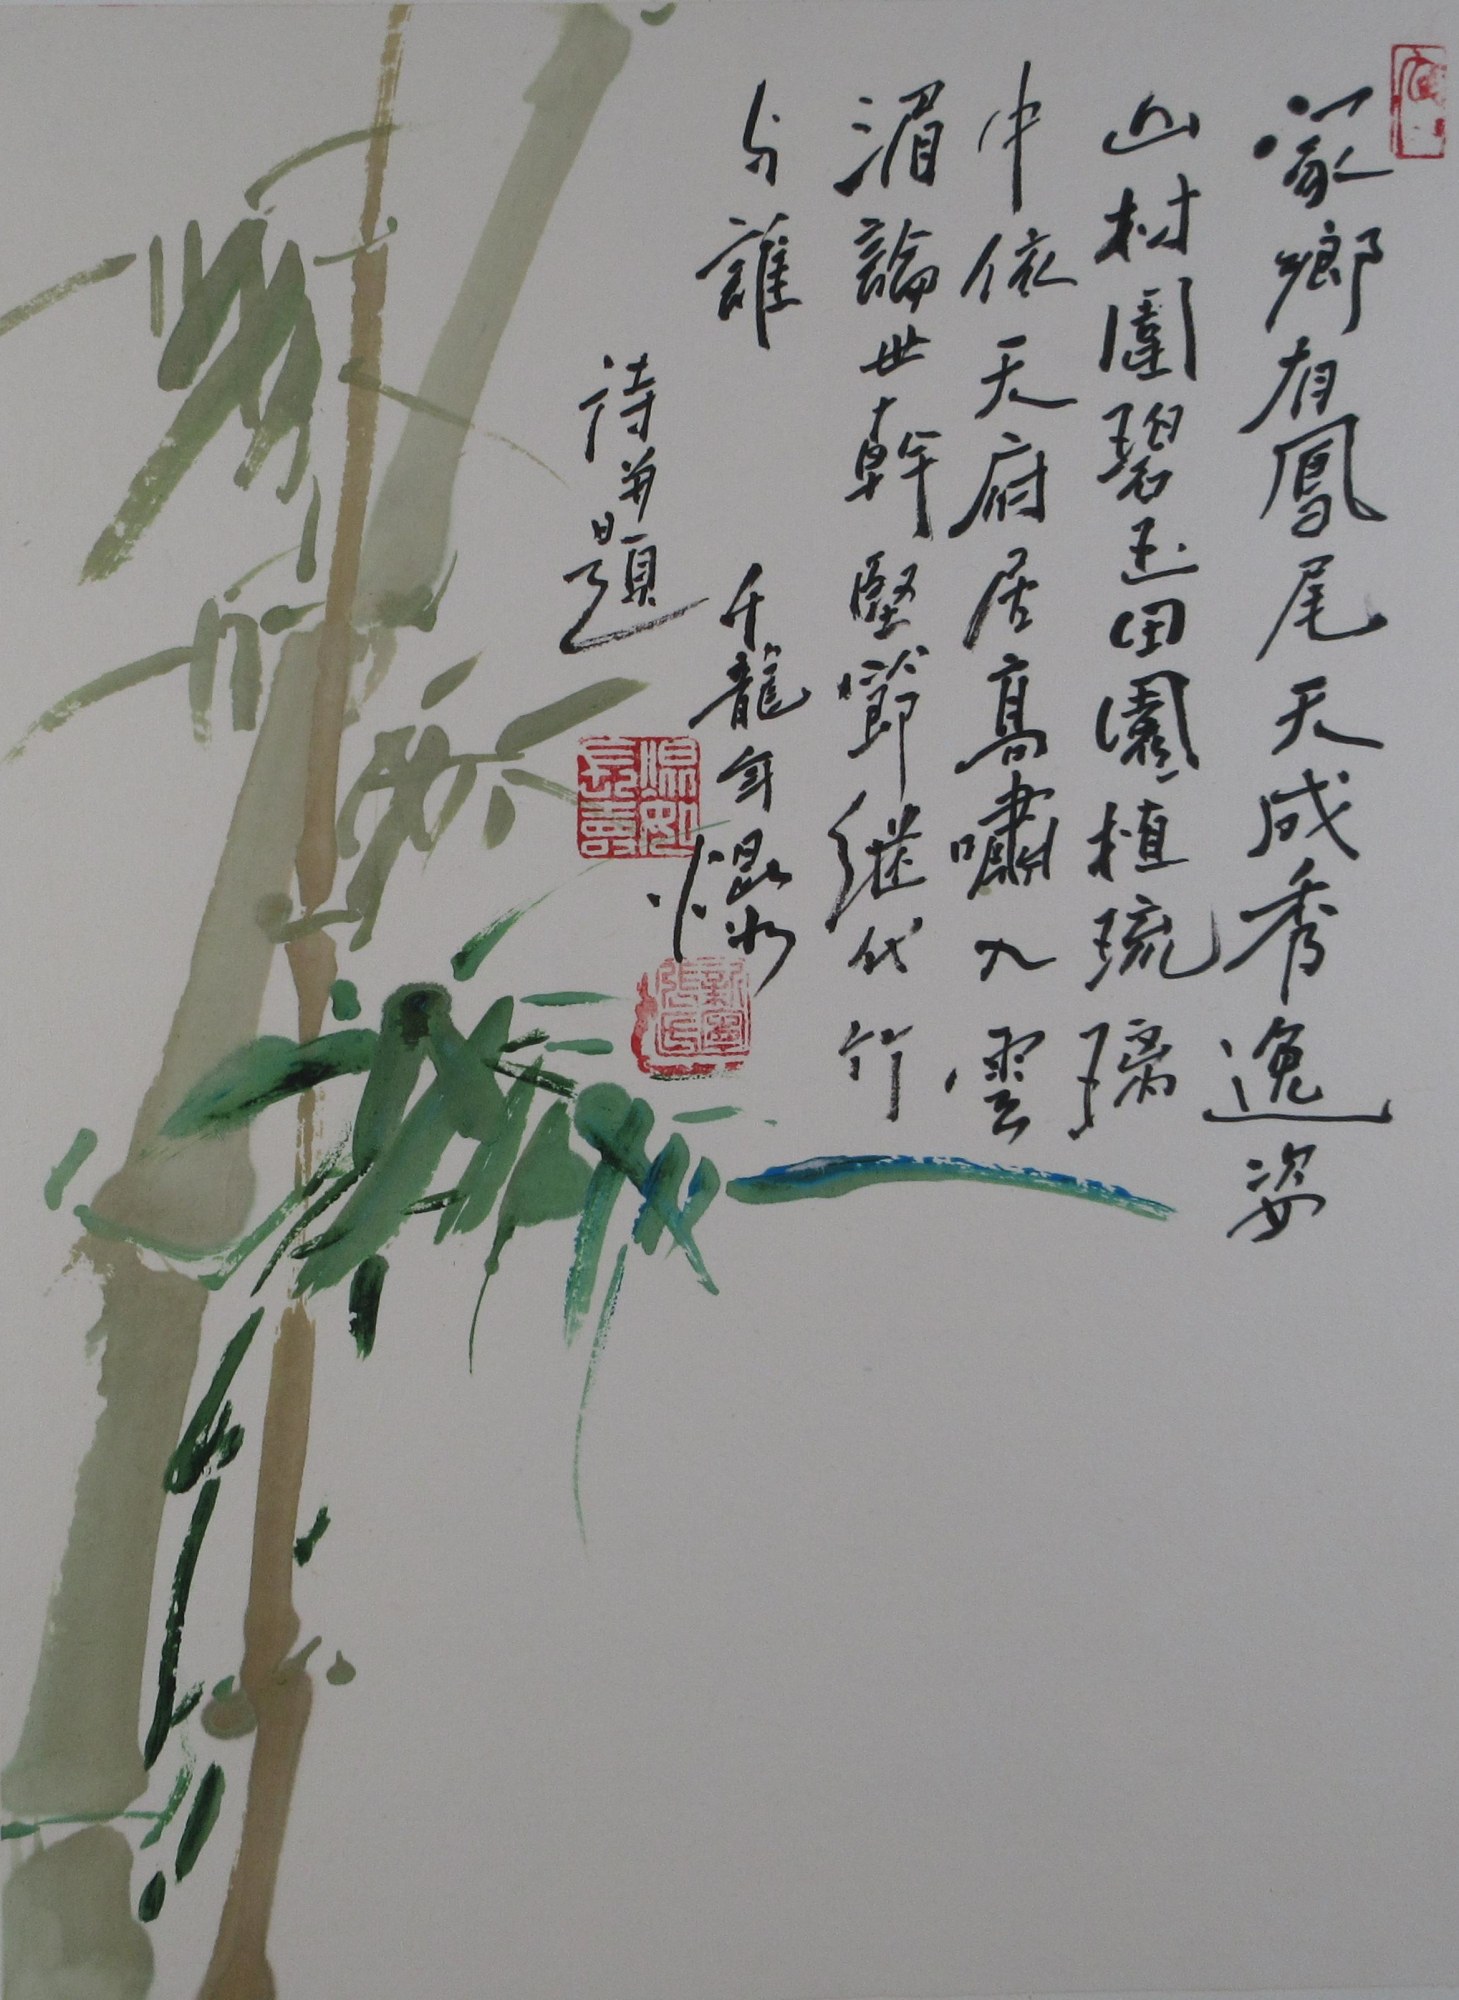 家鄉有鳳尾天成秀逸姿
山村圍碧玉田園植琉璃
中依天府居高嘯入雲
湄論世幹堅節继代竹
与誰
千龍年焜
詩并題